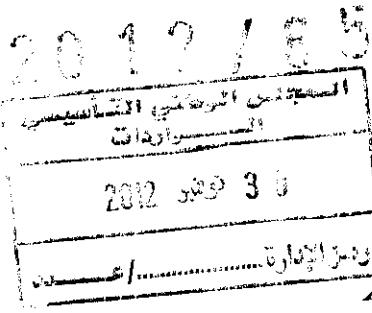 2012 / 85
المجلس الوطني التأسيسي
الـــــواردات
30 نوفمبر 2012
رمز الإدارة ............/عـــــدد